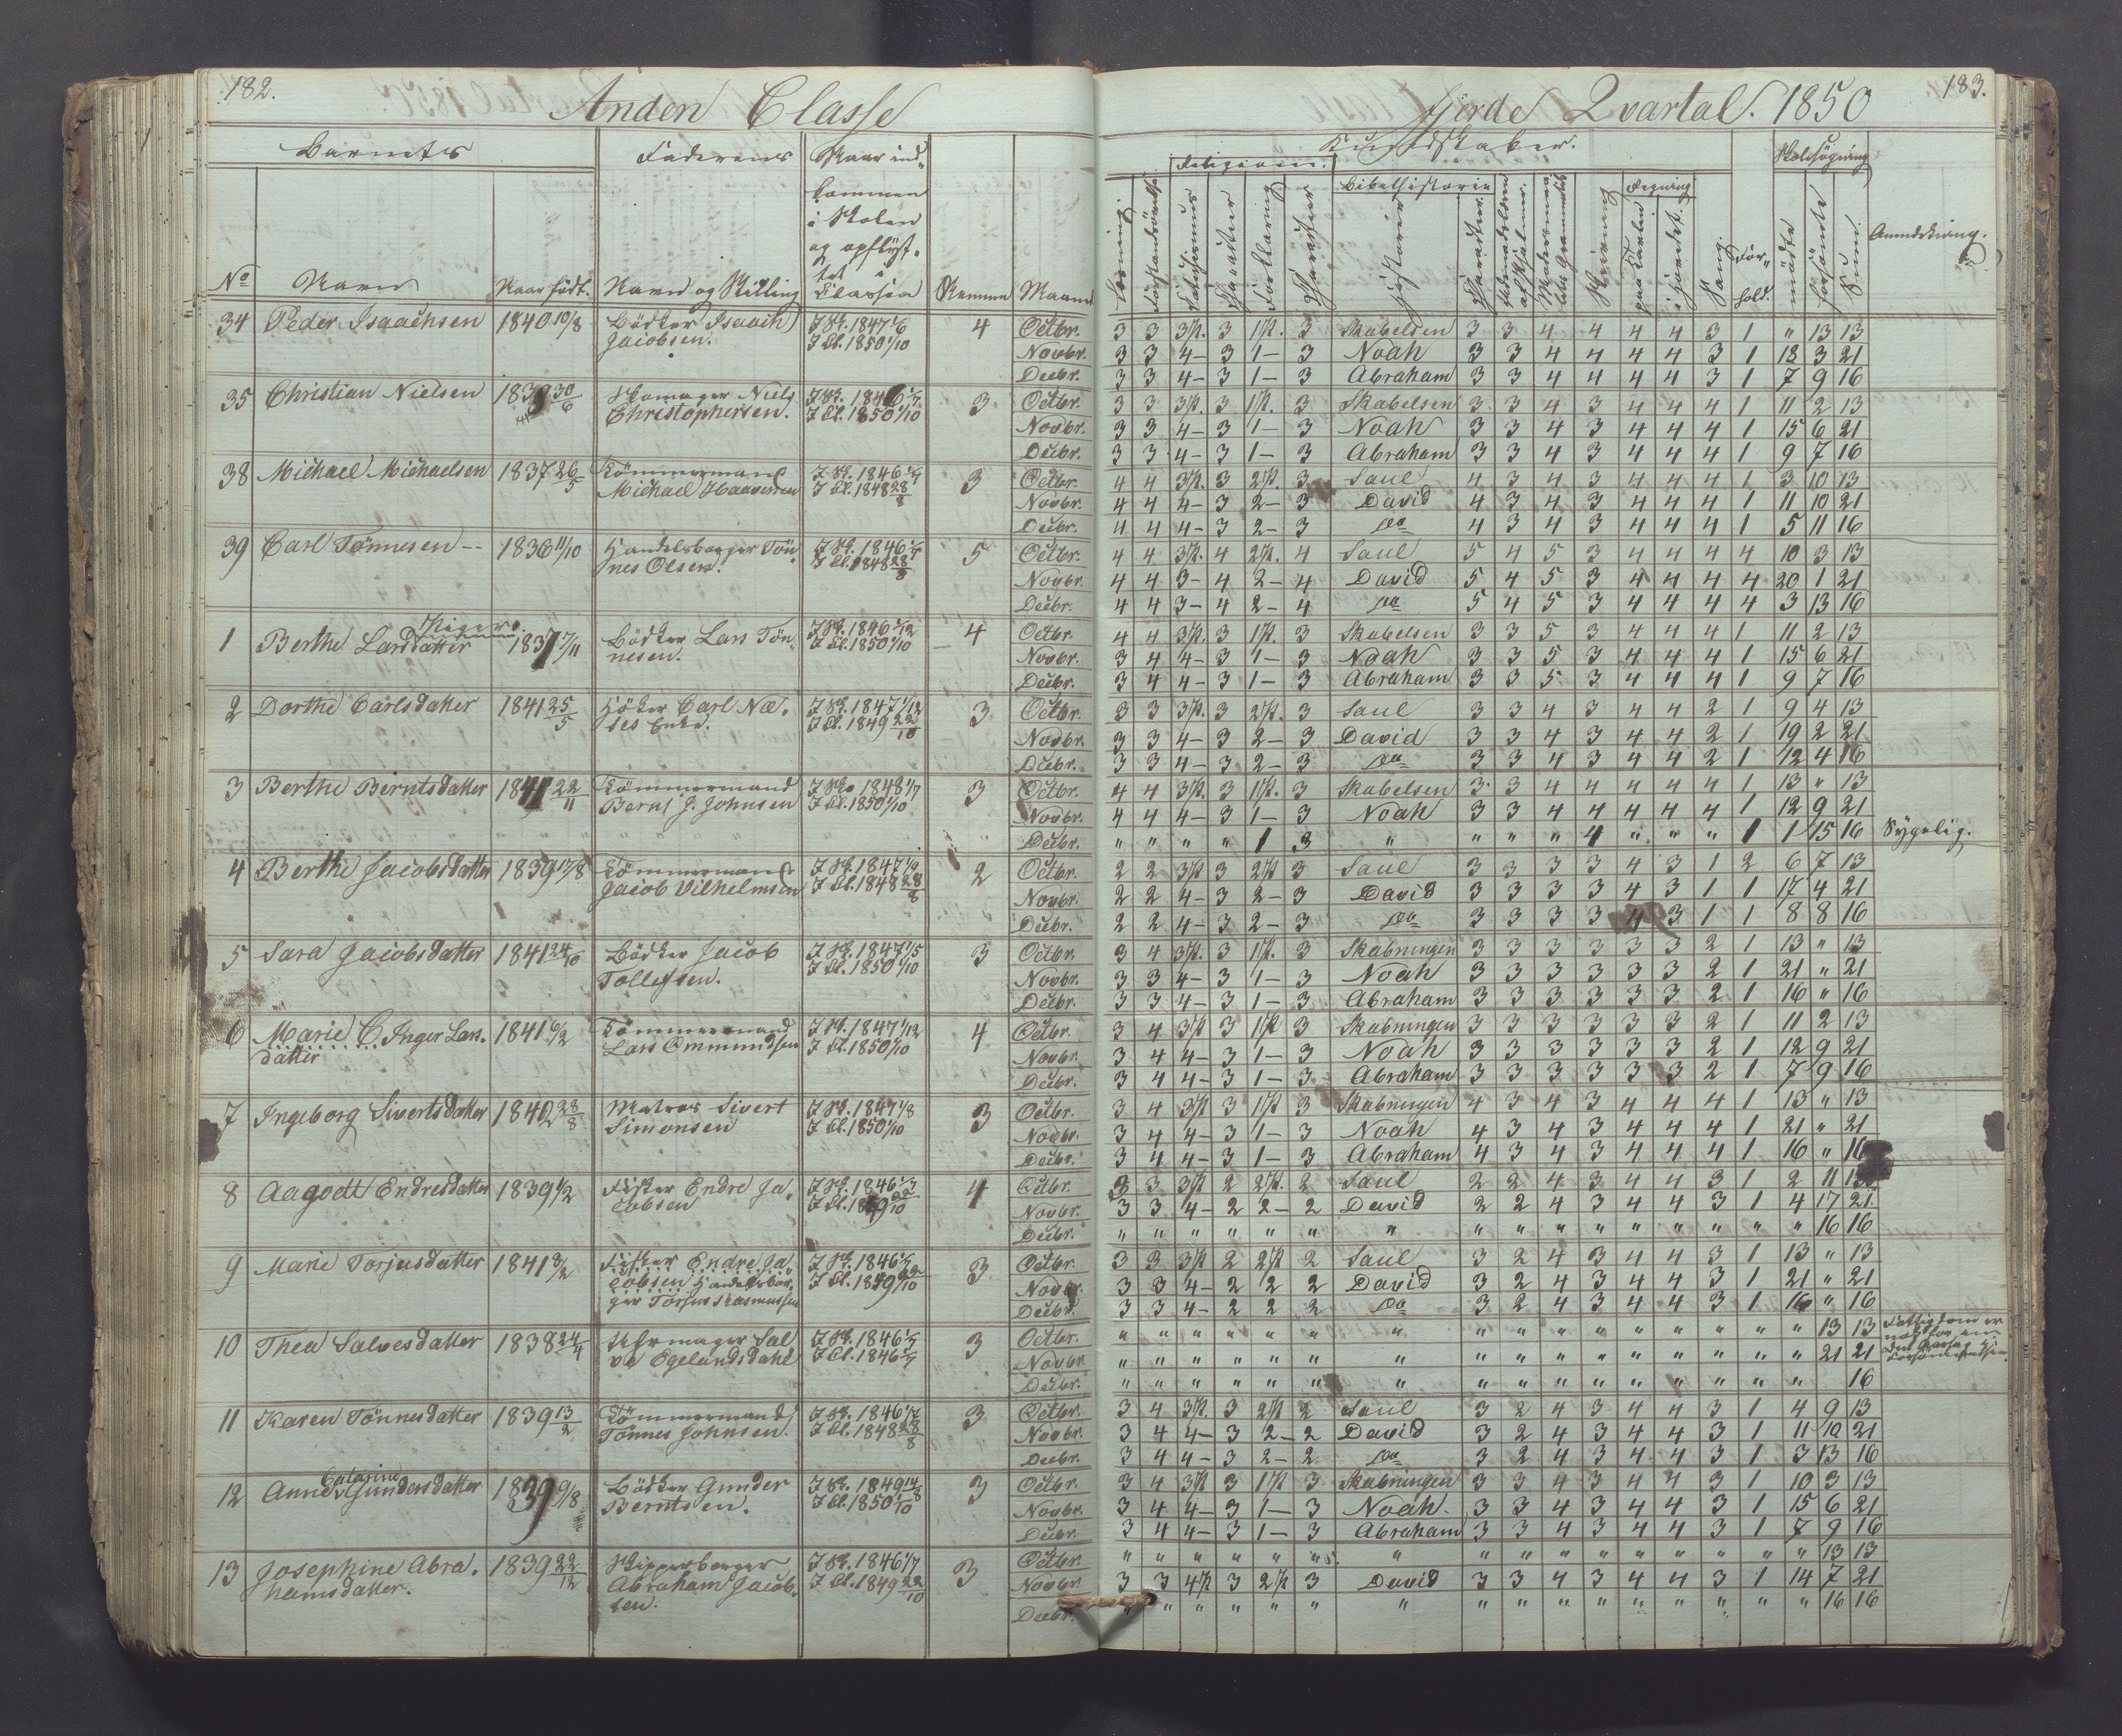 182.
Anden Classe
Barnets
Faderens
Naar ind-
kommen
i Skolen
og opflyt-
tet i
Classen
No
Navn
Naar født.
Navn og Stilling
Nummer
Maaned
34 Peder Isaachsen 1840 10/8 Bødker Isaach I Sk. 1847 1/6 4 Octbr.
Jacobsen. I Cl. 1850 1/10 Novbr.
Decbr.
35 Christian Nielsen 1839 30/6 Skomager Niels I Sk. 1846 1/7 3 Octbr.
Christophersen. I Cl. 1850 1/10 Novbr.
Decbr.
38 Michael Michaelsen 1837 26/5 Tømmermand I Sk. 1846 1/7 3 Octbr.
Michael Haaversen I Cl. 1848 28/8 Novbr.
Decbr.
39 Carl Tønnesen -- 1836 11/10 Handelsborger Tøn I Sk. 1846 1/7 5 Octbr.
nes Olsen. I Cl. 1848 28/8 Novbr.
Decbr.
Piger.
1 Berthe Larsdatter 1837 17/11 Bødker Lars Tøn- I Sk. 1846 1/12 4 Octbr.
nesen. I Cl. 1850 1/10 Novbr.
Decbr.
2 Dorthe Carlsdatter 1841 25/5 Høker Carl Næ- I Sk. 1847 1/12 3 Octbr.
ses Enke. I Cl. 1849 22/10 Novbr.
Decbr.
3 Berthe Berntsdatter 1841 22/11 Tømmermand I Sk. 1848 1/7 3 Octbr.
Bernt J. Johnsen I Cl. 1850 1/10 Novbr.
Decbr.
4 Berthe Jacobsdatter 1839 17/8 Tømmermand I Sk. 1847 1/9 2 Octbr.
Jacob Vilhelmsen I Cl. 1848 28/8 Novbr.
Decbr.
5 Sara Jacobsdatter 1841 24/10 Bødker Jacob I Sk. 1847 1/5 3 Octbr.
Tollefsen. I Cl. 1850 1/10 Novbr.
Decbr.
6 Marie C. Inger Lars- 1841 6/2 Tømmermand I Sk. 1847 1/12 4 Octbr.
datter Lars Ommundsen I Cl. 1850 1/10 Novbr.
Decbr.
7 Ingeborg Sivertsdatter 1840 28/8 Matros Sivert I Sk. 1847 1/8 3 Octbr.
Simonsen I Cl. 1850 1/10 Novbr.
Decbr.
8 Aagodt Endresdatter 1839 1/2 Fisker Endre Ja- I Sk. 1846 1/7 4 Octbr.
cobsen I Cl. 1849 22/10 Novbr.
Decbr.
9 Marie Torjusdatter 1841 8/2 Fisker Endre Ja- I Sk. 1846 1/7 3 Octbr.
cobsen Handelsbor- I Cl. 1849 22/10 Novbr.
ger Torjus Rasmussen Decbr.
10 Thea Salvesdatter 1838 24/4 Uhrmager Sal I Sk. 1846 1/7 3 Octbr.
ve Egelandsdahl I Cl. 1846 1/7 Novbr.
Decbr.
11 Karen Tønnesdatter 1839 13/2 Tømmermand I Sk. 1846 1/7 3 Octbr.
Tønnes Johnsen. I Cl. 1848 28/8 Novbr.
Decbr.
Catarine
12 Anne Gundersdatter 1839 9/8 Bødker Gunder I Sk. 1849 14/8 3 Octbr.
Berntsen. I Cl. 1850 1/10 Novbr.
Decbr.
13 Josephine Abra- 1839 22/12 Skipperborger I Sk. 1846 1/7 3 Octbr.
hamsdatter. Abraham Jacob- I Cl. 1849 22/10 Novbr.
sen. Decbr.
183.
Fjerde Qvartal. 1850
Kundskaber.
Skolesøgning
Religion.
Bibelhistorie
Regning
Anmærkning.
Forklaring
Historier
Skrivning
paa Tavlen
i Hovedet.
Sang.
For-
hold.
mødte
forsømte
Sum.
3 3 3p. 3 1p. 3 Skabelsen 3 3 4 4 4 4 3 1 " 13 13
3 3 4- 3 1- 3 Noah 3 3 4 4 4 4 3 1 18 3 21
3 3 4- 3 1- 3 Abraham 3 3 4 4 4 4 3 1 7 9 16
3 3 3p. 3 1p. 3 Skabelsen 3 3 4 3 4 4 4 1 11 2 13
3 3 4- 3 1- 3 Noah 3 3 4 3 4 4 4 1 15 6 21
3 3 4- 3 1- 3 Abraham 3 3 4 3 4 4 4 1 9 7 16
4 4 3p. 3 2p. 3 Saul 4 3 4 3 4 4 4 1 3 10 13
4 4 4- 3 2- 3 David 4 3 4 3 4 4 4 1 11 10 21
4 4 4- 3 2- 3 Do 4 3 4 3 4 4 4 1 5 11 16
4 4 3p. 4 2p. 4 Saul 5 4 5 3 4 4 4 4 10 3 13
4 4 3- 4 2- 4 David 5 4 5 3 4 4 4 4 20 1 21
4 4 3- 4 2- 4 Do 5 4 5 3 4 4 4 4 3 13 16
4 4 3p. 3 1p. 3 Skabelsen 3 3 5 3 4 4 4 1 11 2 13
3 4 4- 3 1- 3 Noah 3 3 5 3 4 4 4 1 15 6 21
3 4 4- 3 1- 3 Abraham 3 3 5 3 4 4 4 1 9 7 16
3 3 3p. 3 2p. 3 Saul 3 3 4 3 4 4 2 1 9 4 13
3 3 4- 3 2- 3 David 3 3 4 3 4 4 2 1 19 2 21
3 3 4- 3 2- 3 Do 3 3 4 3 4 4 2 1 12 4 16
4 4 3p. 3 1p. 3 Skabelsen 3 3 4 4 4 4 4 1 13 " 13
4 4 4- 3 1- 3 Noah 3 3 4 4 4 4 4 1 12 9 21
" " " " 1 3 " " " " 4 " " " 1 1 15 16 Sygelig.
2 2 3p 3 2p 3 Saul 3 3 3 3 4 3 1 2 6 7 13
2 2 4- 3 2- 3 David 3 3 3 3 4 3 1 1 17 4 21
2 2 4- 3 2- 3 Do 3 3 3 3 4 3 1 1 8 8 16
3 4 3p. 3 1p. 3 Skabningen 3 3 3 3 3 3 2 1 13 " 13
3 3 4- 3 1- 3 Noah 3 3 3 3 3 3 2 1 21 " 21
3 3 4- 3 1- 3 Abraham 3 3 3 3 3 3 2 1 16 " 16
3 4 3p 3 1p 3 Skabningen 3 3 3 3 3 3 2 1 11 2 13
3 4 4- 3 1- 3 Noah 3 3 3 3 3 3 2 1 12 9 21
3 4 4- 3 1- 3 Abraham 3 3 3 3 3 3 2 1 7 9 16
3 4 3p 3 1p 3 Skabningen 4 3 4 3 4 4 4 1 13 " 13
3 4 4- 3 1- 3 Noah 4 3 4 3 4 4 4 1 21 " 21
3 4 4- 3 1- 3 Abraham 4 3 4 3 4 4 4 1 16 " 16
3 3 3p 2 2p. 2 Saul 2 2 4 3 4 4 3 1 2 11 13
3 3 4- 2 2- 2 David 2 2 4 3 4 4 3 1 4 17 21
" " " " " " " " " " " " " " " " 16 16
3 3 3p 2 2p 2 Saul 3 2 4 3 4 4 3 1 13 " 13
3 3 4- 2 2 2 David 3 2 4 3 4 4 3 1 21 " 21
3 3 4- 2 2 2 Do 3 2 4 3 4 4 3 1 16 " 16
" " " " " " " " " " " " " " " " 13 13 Fattigdom er
" " " " " " " " " " " " " " " " 21 21
" " " " " " " " " " " " " " " " 16
3 4 3p. 3 2p 2 Saul 3 2 4 3 4 4 3 1 4 9 13
3 4 4- 3 2- 2 David 3 2 4 3 4 4 3 1 11 10 21
3 4 4- 3 2- 2 Do 3 2 4 3 4 4 3 1 3 13 16
3 4 3p 3 1p 3 Skabningen 3 3 4 3 4 4 3 1 10 3 13
3 4 4- 3 1- 3 Noah 3 3 4 3 4 4 3 1 15 6 21
3 4 4- 3 1- 3 Abraham 3 3 4 3 4 4 3 1 7 9 16
" " " " " " " " " " " " " " " " 13 13
3 3 4p 3 2p 3 David 3 3 4 3 4 4 3 1 14 7 21
" " " " " " " " " " " " " " " " 16 16